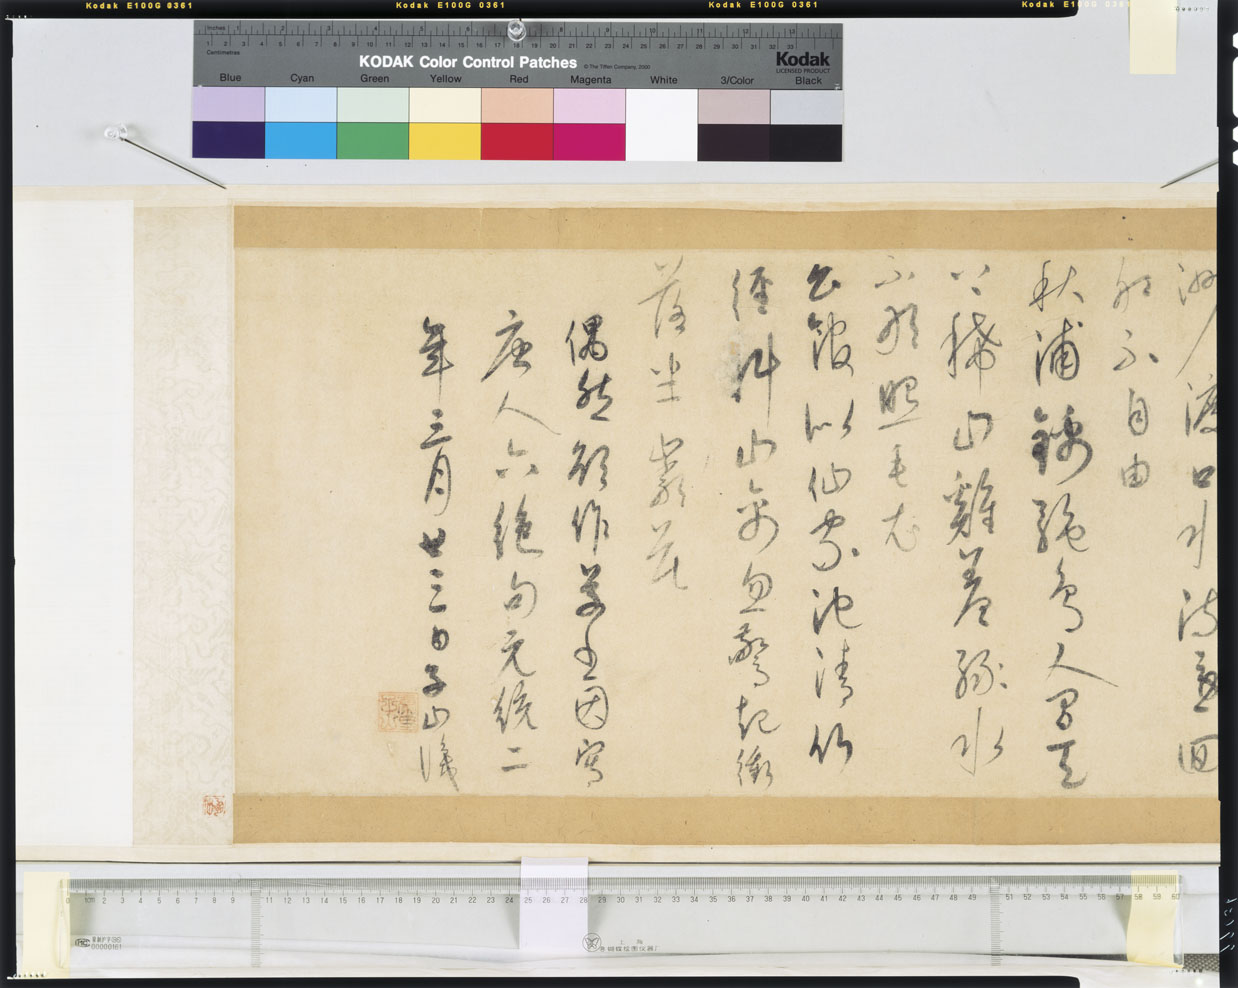 Kodak E100G 0361
Kodak E100G 0361
Kodak E100G 0361
Kodak E100G 0361
Inches
Centimetres
KODAK Color Control Patches
© The Tiffen Company, 2000
Kodak
LICENSED PRODUCT
Blue Cyan Green Yellow Red Magenta White 3/Color Black
洲渡口水流急回
船不自由
秋浦錦鴕鳥人間天
上稀山雞羞綠水
不敢照毛衣
公館似仙家池清竹
徑斜山禽忽驚起衝
落半巖花
偶然欲作草書因寫
唐人六絕句元統二
年三月廿三日子山識
0 1cm 2 3 4 5 6 7 8 9 11 12 13 14 15 16 17 18 19 20 21 22 23 24 25 26 27 28 29 30 31 32 33 34 35 36 37 38 39 40 41 42 43 44 45 46 47 48 49 51 52 53 54 55 56 57 58 59 60
00000161
上海